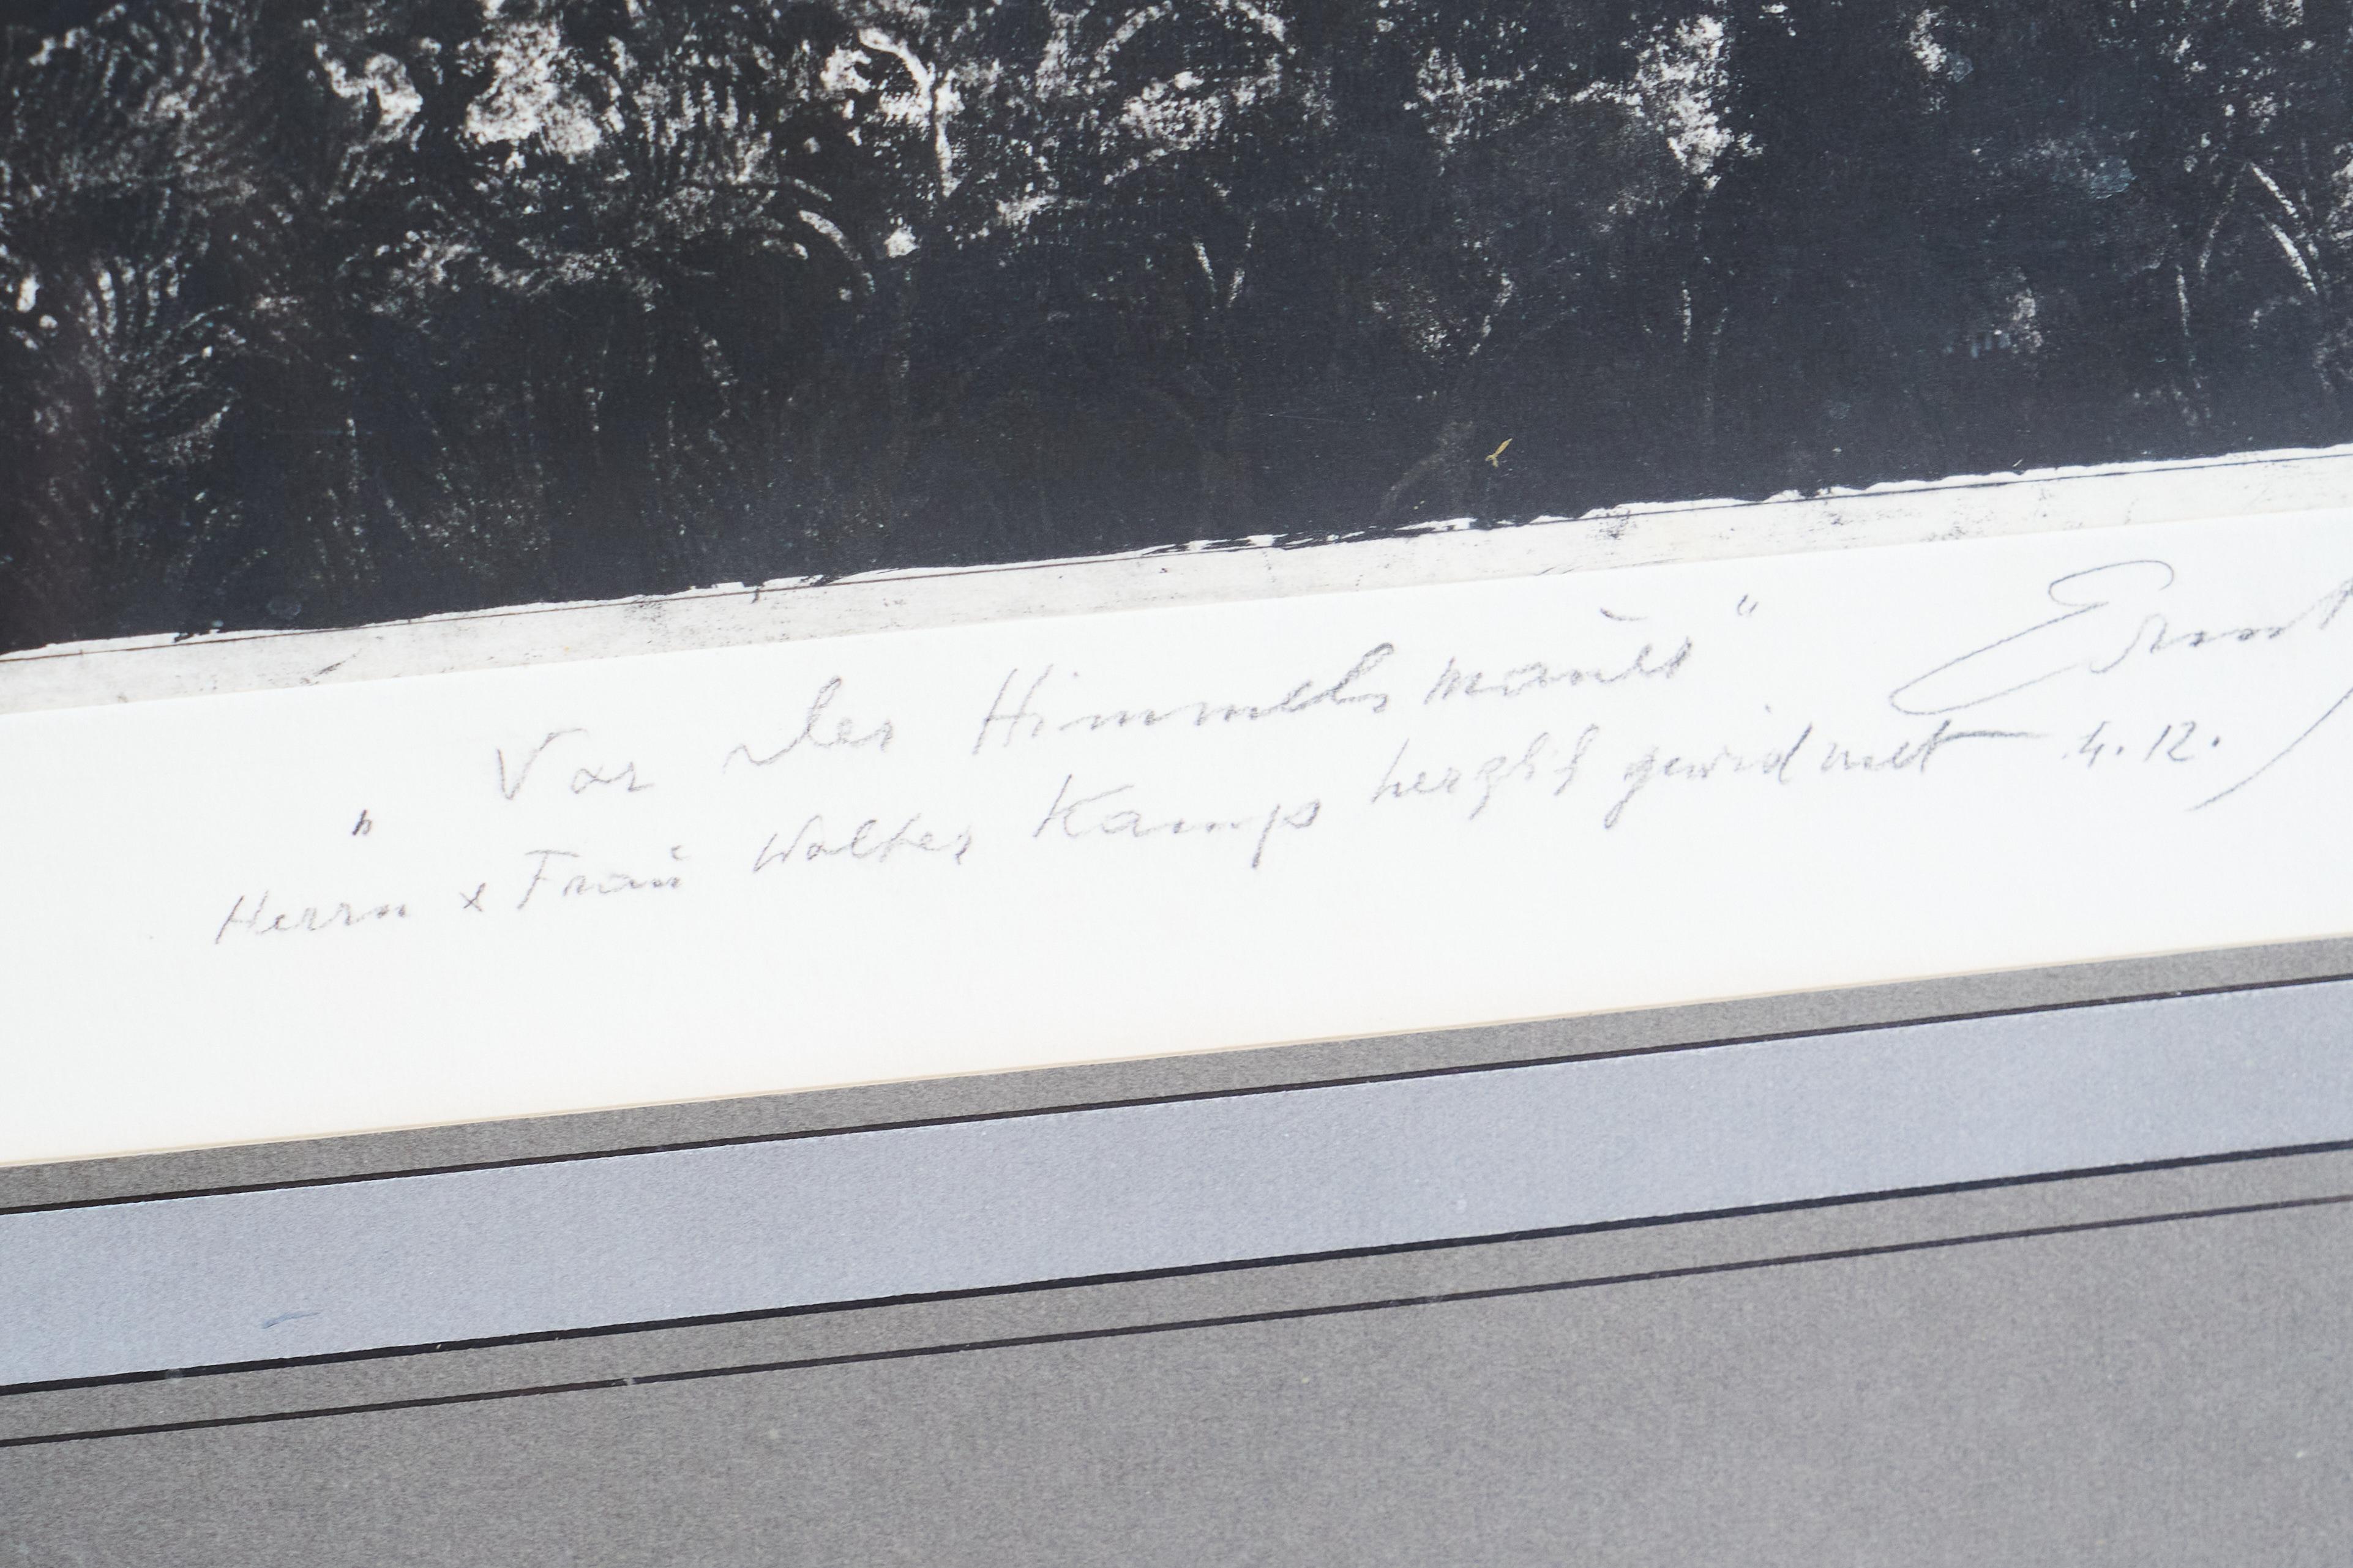 „ Vor der Himmelsmauer“ Ernst
Herrn & Frau Walter Kamp herzlich gewidmet 4.12.